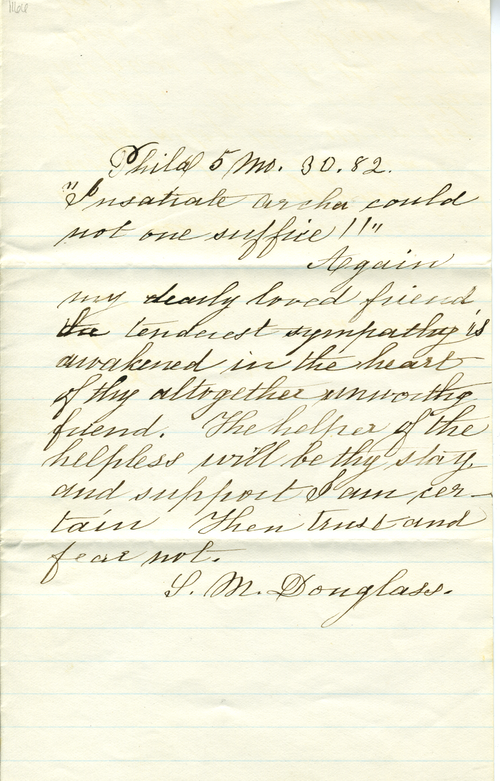 Phild 5 Mo. 30. 82.
"Insatiate archer could
not one suffice!!"
Again
my dearly loved friend
the tenderest sympathy is
awakened in the heart
of thy altogether unworthy
friend. The helper of the
helpless will be thy stay
and support I am cer-
tain Then trust and
fear not.
S. M. Douglass.